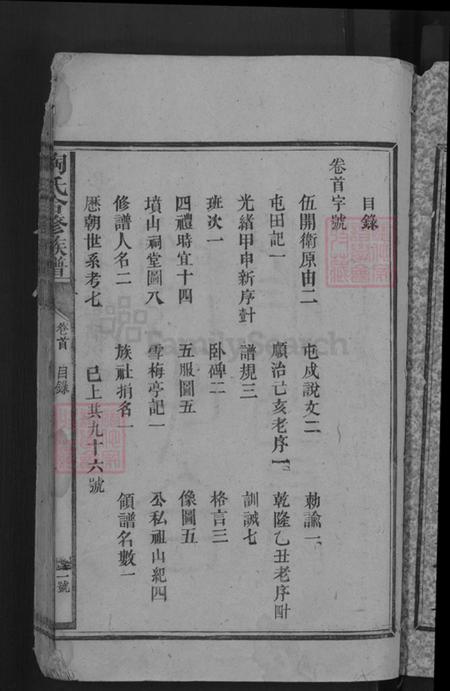 目錄
卷首字號
伍開衛原由二 屯戍說文二 勅諭一
屯田記一 順治己亥老序一 乾隆乙丑老序卌
光緒甲申新序卦 譜規三 訓誡七
班次一 卧碑二 格言三
四禮時宜十四 五服圖五 像圖五
墳山祠堂圖八 雪梅亭記一 公私祖山紀四
修譜人名二 族社捐名一 領譜名數一
歷朝世系考七 已上共九十六號
氏會修族譜
卷首 目錄
一號
FamilySearch